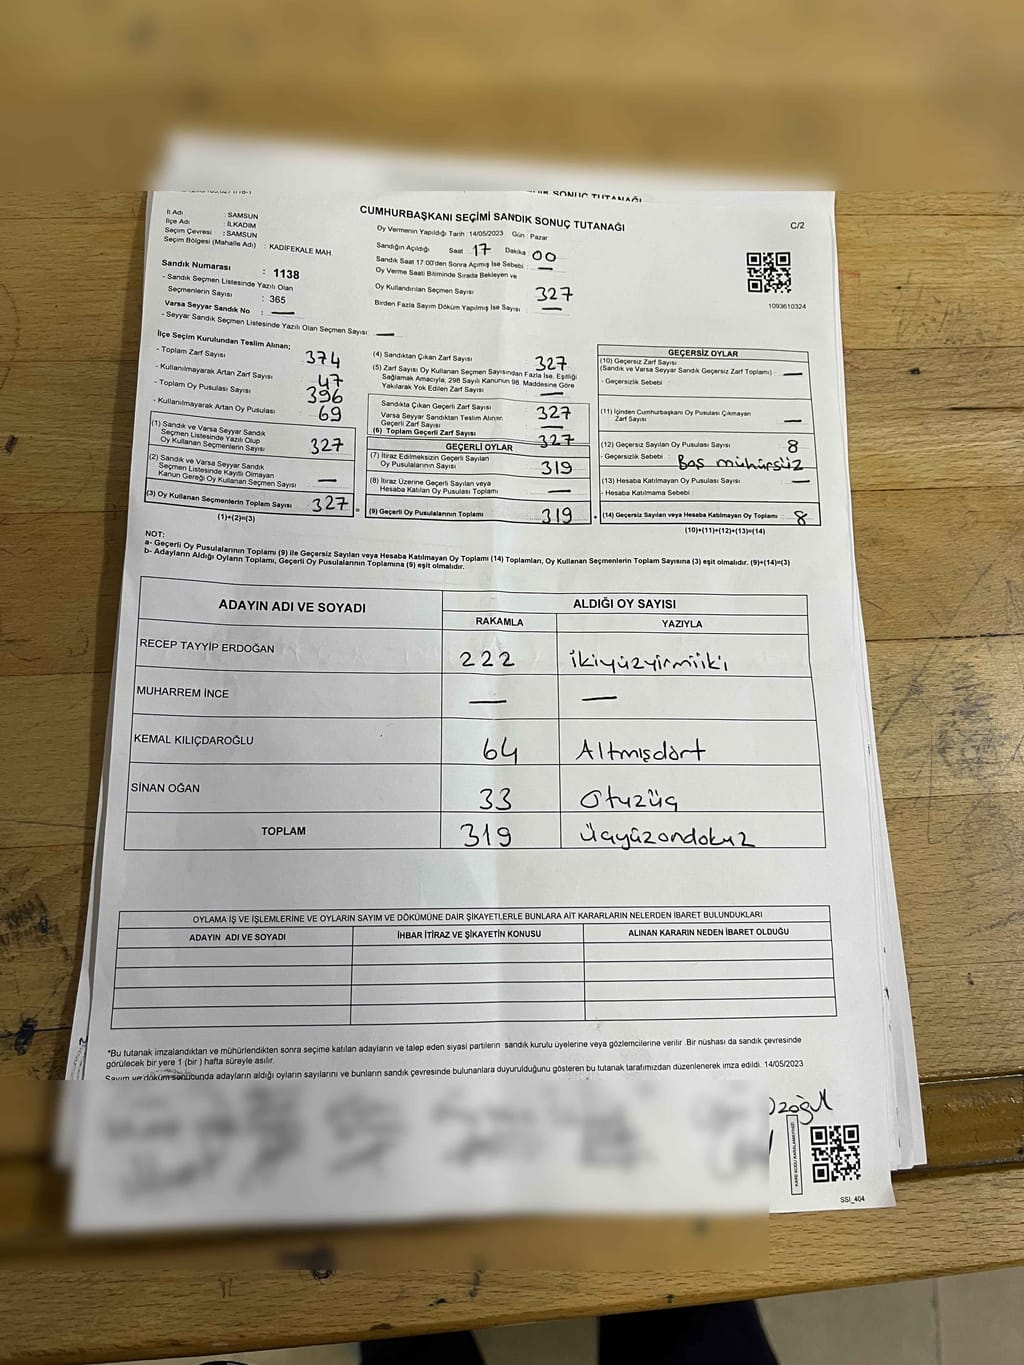 CUMHURBAŞKANI SEÇİMİ SANDIK SONUÇ TUTANAĞI
C/2
İl Adı : SAMSUN
İlçe Adı : İLKADIM
Seçim Çevresi : SAMSUN
Seçim Bölgesi (Mahalle Adı) : KADIFEKALE MAH.
Sandık Numarası : 1138
- Sandık Seçmen Listesinde Yazılı Olan
Seçmenlerin Sayısı : 365
Varsa Seyyar Sandık No : —
- Seyyar Sandık Seçmen Listesinde Yazılı Olan Seçmen Sayısı : —
Oy Vermenin Yapıldığı Tarih : 14/05/2023 Gün : Pazar
Sandığın Açıldığı Saat : 17 Dakika : 00
Sandık Saat 17:00'den Sonra Açımış İse Sebebi : —
Oy Verme Saati Bitiminde Sırada Bekleyen ve
Oy Kullandırılan Seçmen Sayısı 327
Birden Fazla Sayım Döküm Yapılmış İse Sayısı : —
1093610324
İlçe Seçim Kurulundan Teslim Alınan;
- Toplam Zarf Sayısı 374
- Kullanılmayarak Artan Zarf Sayısı 47
- Toplam Oy Pusulası Sayısı 396
- Kullanılmayarak Artan Oy Pusulası 69
(1) Sandık ve Varsa Seyyar Sandık
Seçmen Listesinde Yazılı Olup
Oy Kullanan Seçmenlerin Sayısı 327
(2) Sandık ve Varsa Seyyar Sandık
Seçmen Listesinde Kayıtlı Olmayan
Kanun Gereği Oy Kullanan Seçmen Sayısı —
(3) Oy Kullanan Seçmenlerin Toplam Sayısı 327
(1)+(2)=(3)
(4) Sandıktan Çıkan Zarf Sayısı 327
(5) Zarf Sayısı Oy Kullanan Seçmen Sayısından Fazla İse, Eşitliği
Sağlamak Amacıyla, 298 Sayılı Kanunun 98. Maddesine Göre
Yakılarak Yok Edilen Zarf Sayısı —
Sandıkta Çıkan Geçerli Zarf Sayısı 327
Varsa Seyyar Sandıktan Teslim Alınan
Geçerli Zarf Sayısı —
(6) Toplam Geçerli Zarf Sayısı 327
GEÇERLİ OYLAR
(7) İtiraz Edilmeksizin Geçerli Sayılan
Oy Pusulalarının Sayısı 319
(8) İtiraz Üzerine Geçerli Sayılan veya
Hesaba Katılan Oy Pusulası Toplamı —
(9) Geçerli Oy Pusulalarının Toplamı 319
GEÇERSİZ OYLAR
(10) Geçersiz Zarf Sayısı
(Sandık ve Varsa Seyyar Sandık Geçersiz Zarf Toplamı) —
- Geçersizlik Sebebi :
(11) İçinden Cumhurbaşkanı Oy Pusulası Çıkmayan
Zarf Sayısı —
(12) Geçersiz Sayılan Oy Pusulası Sayısı 8
- Geçersizlik Sebebi : Boş mühürsüz
(13) Hesaba Katılmayan Oy Pusulası Sayısı : —
- Hesaba Katılmama Sebebi :
(14) Geçersiz Sayılan veya Hesaba Katılmayan Oy Toplamı 8
(10)+(11)+(12)+(13)=(14)
NOT:
a- Geçerli Oy Pusulalarının Toplamı (9) ile Geçersiz Sayılan veya Hesaba Katılmayan Oy Toplamı (14) Toplamları, Oy Kullanan Seçmenlerin Toplam Sayısına (3) eşit olmalıdır. (9)+(14)=(3)
b- Adayların Aldığı Oyların Toplamı, Geçerli Oy Pusulalarının Toplamına (9) eşit olmalıdır.
ADAYIN ADI VE SOYADI ALDIĞI OY SAYISI
RAKAMLA YAZIYLA
RECEP TAYYİP ERDOĞAN 222 ikiyüzyirmiiki
MUHARREM İNCE — —
KEMAL KILIÇDAROĞLU 64 Altmışdört
SİNAN OĞAN 33 Otuzüç
TOPLAM 319 Üçyüzondokuz
OYLAMA İŞ VE İŞLEMLERİNE VE OYLARIN SAYIM VE DÖKÜMÜNE DAİR ŞİKAYETLERLE BUNLARA AİT KARARLARIN NELERDEN İBARET BULUNDUKLARI
ADAYIN ADI VE SOYADI İHBAR İTİRAZ VE ŞİKAYETİN KONUSU ALINAN KARARIN NEDEN İBARET OLDUĞU
*Bu tutanak imzalandıktan ve mühürlendikten sonra seçime katılan adayların ve talep eden siyasi partilerin sandık kurulu üyelerine veya gözlemcilerine verilir. Bir nüshası da sandık çevresinde
görülecek bir yere 1 (bir ) hafta süreyle asılır.
Sayım ve döküm sonucunda adayların aldığı oyların sayılarını ve bunların sandık çevresinde bulunanlara duyurulduğunu gösteren bu tutanak tarafımızdan düzenlenerek imza edildi. 14/05/2023
SSİ_404